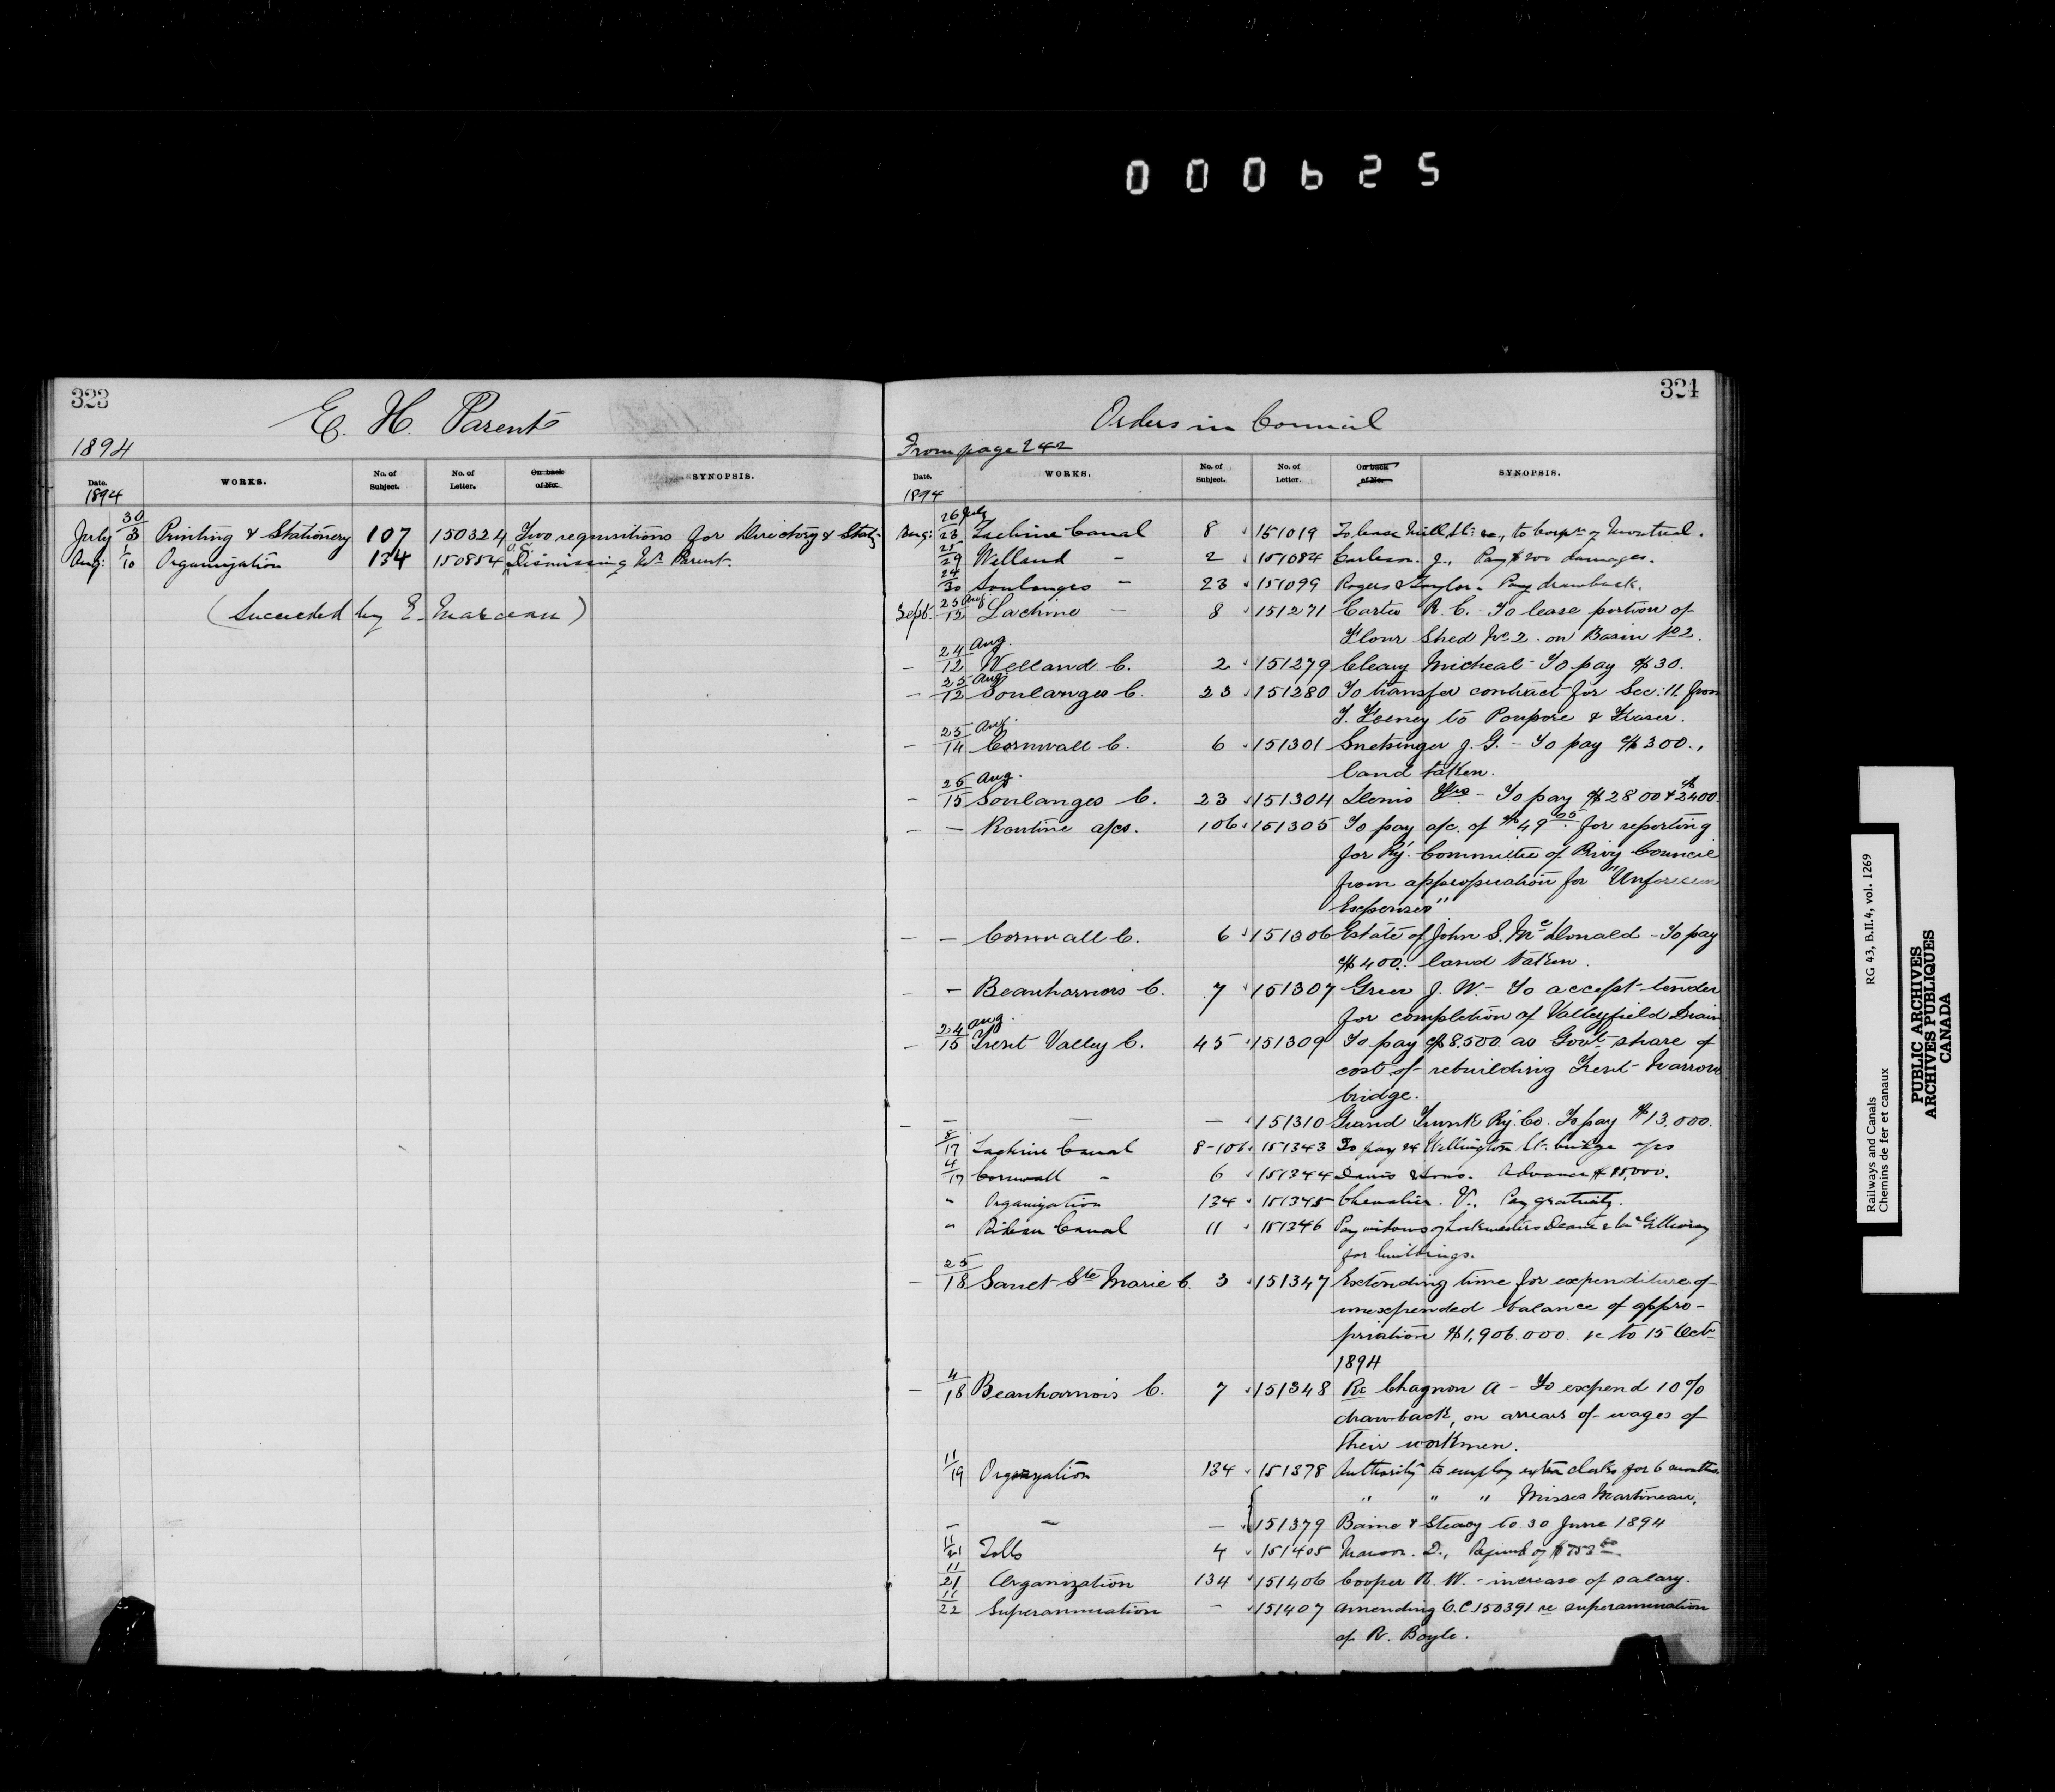 000625
323
E. H. Parent
1894
Date. WORKS. No. of Subject. No. of Letter. On back of No. SYNOPSIS.
1894
July 30/3 Printing & Stationery 107 150324 Two requisitions for Directory & Staty
Aug: 1/10 Organization 134 150854 O.C. Dismissing Mr Parent.
(Succeeded by E. Marceau)
324
Orders in Council
From page 242
Date. WORKS. No. of Subject. No. of Letter. On back of No. SYNOPSIS.
1894
Aug: 26 July/23 Lachine Canal 8 151019 To lease Mill St: &c., to Corpn of Montreal.
21/29 Welland - 2 151084 Carlson. J., Pay $200 damages.
24/30 Soulanges - 23 151099 Rogers & Taylor - Pay drawback.
Sept. 25 Aug/12 Lachine - 8 151271 Carter R. C. - To lease portion of
Flour Shed No 2. on Basin No 2.
- 24 Aug./12 Welland C. 2 151279 Cleary Micheal - To pay $30.
- 25 Aug/12 Soulanges C. 23 151280 To transfer contract for Sec: 11 from
T. Feeney to Poupore & Fraser.
- 25 Aug./14 Cornwall C. 6 151301 Snetsinger J. G. - To pay $300.,
land taken.
- 25 Aug./15 Soulanges C. 23 151304 Denis - To pay $2800 & $2400
- - Routine a/cs. 106 151305 To pay a/c. of $49 05 for reporting
for Ry. Committee of Privy Council
from appropriation for "Unforeseen
Expenses"
- - Cornwall C. 6 151306 Estate of John S. McDonald - To pay
$400. land taken.
- - Beauharnois C. 7 151307 Grier J. W. - To accept tender
for completion of Valleyfield Drain
- 24 Aug./15 Trent Valley C. 45 151309 To pay $8.500 as Govt. share of
cost of rebuilding Trent Narrows
bridge.
- - - - 151310 Grand Trunk Ry. Co. To pay $13,000.
8/17 Lachine Canal 8-106 151343 To pay Wellington St. bridge a/cs
4/17 Cornwall - 6 151344 Davis & Sons. Advance $85,000.
" Organization 134 151345 Chevalier. V., Pay gratuity.
" Rideau Canal 11 151346 Pay widows of Lockmasters Deane & McGillivray
for buildings.
- 25/18 Sault Ste Marie C. 3 151347 Extending time for expenditure of
unexpended balance of appro-
priation $1,906.000. &c to 15 Oct
1894
- 4/18 Beauharnois C. 7 151348 Re Chagnon A - To expend 10%
drawback, on arrears of wages of
their workmen.
11/19 Organization 134 151378 Authority to employ extra clerks for 6 months.
" " " Misses Martineau,
- - - 151379 Baine & Steacy to 30 June 1894
11/21 Tolls 4 151405 Mawson. D., Refund of
11/21 Organization 134 151406 Cooper R. W. - increase of salary.
11/22 Superannuation - 151407 Amending O.C. 150391 re superannuation
of R. Boyle.
Railways and Canals RG 43, B.II.4, vol. 1269
Chemins de fer et canaux
PUBLIC ARCHIVES
ARCHIVES PUBLIQUES
CANADA